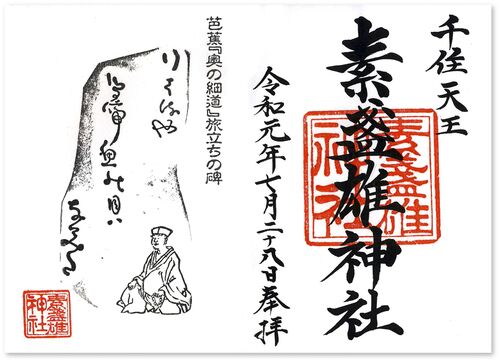 千住天王
素盞雄神社
素盞雄
神社
令和元年七月二十八日奉拝
芭蕉『奥の細道』旅立ちの碑
鳥啼魚の目ハ
素盞雄
神社